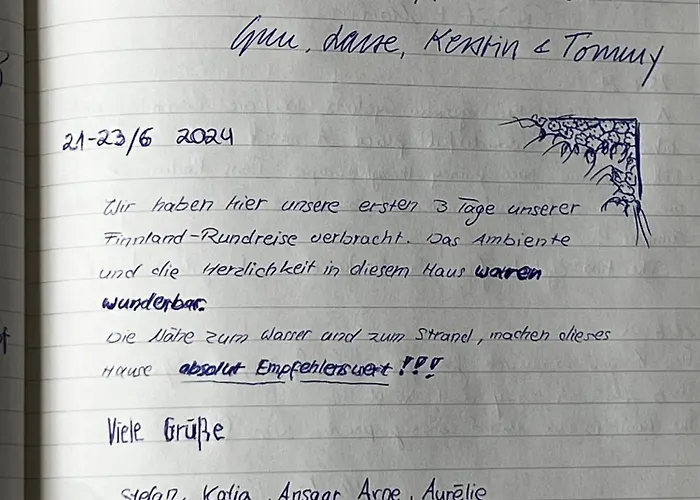 Gun, Lasse, Kerstin & Tommy
21-23/6 2024
Wir haben hier unsere ersten 3 Tage unserer
Finnland-Rundreise verbracht. Das Ambiente
und die Herzlichkeit in diesem Haus waren
wunderbar.
Die Nähe zum Wasser und zum Strand, machen dieses
Hause absolut Empfehlenswert!!!
Viele Grüße
Stefan, Katja, Ansgar, Arne, Aurélie